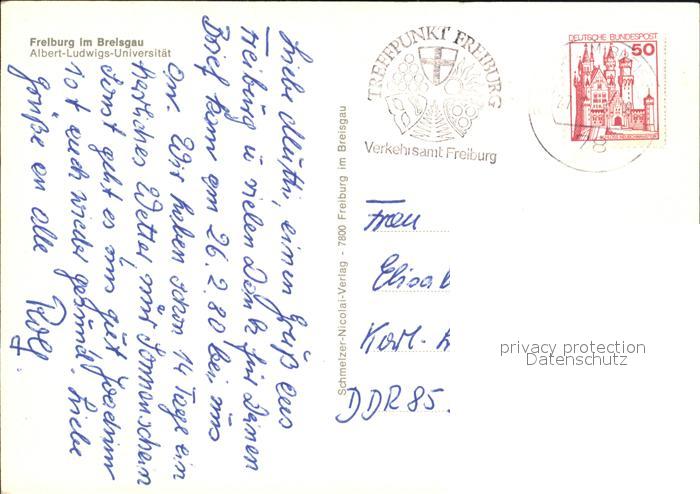 Freiburg im Breisgau
Albert-Ludwigs-Universität
Liebe Mutti, einen Gruß aus
Freiburg u vielen Dank für Deinen
Brief kam am 26.2.80 bei uns
an. Wir haben schon 14 Tage ein
herrliches Wetter, nur Sonnenschein
sonst geht es uns gut Joachim
ist auch wieder gesund. Liebe
Grüße an alle
Rolf
Schmelzer-Nicolai-Verlag - 7800 Freiburg im Breisgau
TREFFPUNKT FREIBURG
Verkehrsamt Freiburg
DEUTSCHE BUNDESPOST
50
78
Frau
Elisab
Karl-
DDR 85.
privacy protection
Datenschutz